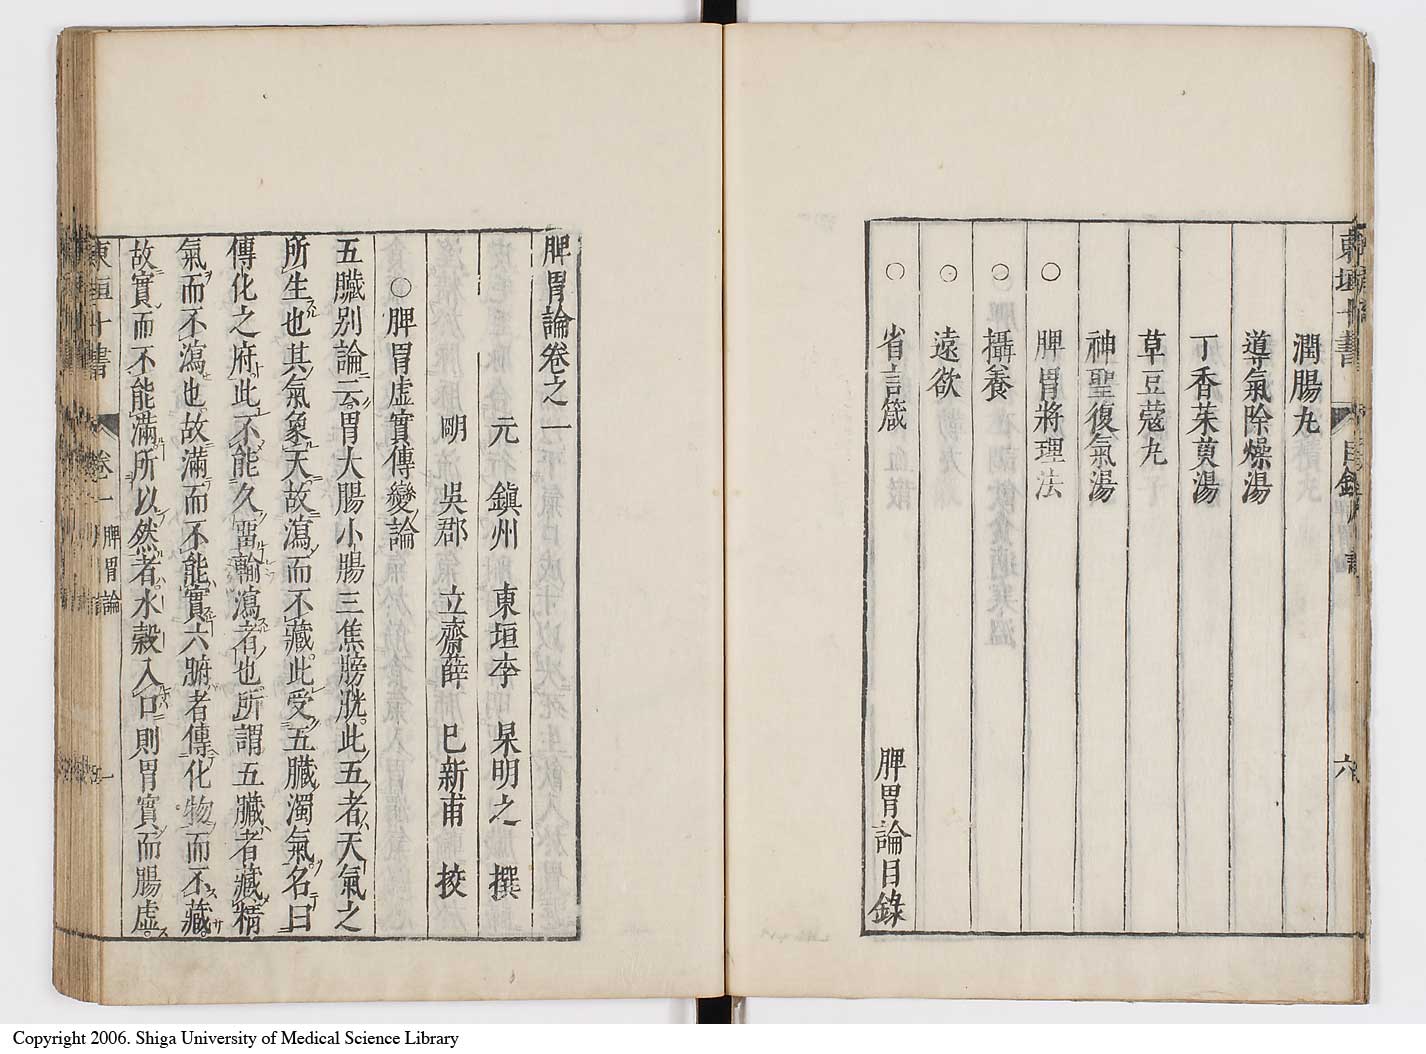 東垣十書 目錄 六
潤腸丸
導氣除燥湯
丁香茱萸湯
草豆蔻丸
神聖復氣湯
○ 脾胃將理法
○ 攝養
○ 遠欲
○ 省言箴
脾胃論目錄
脾胃論卷之一
元 鎮州 東垣李 杲明之 撰
明 吳郡 立齋薛 巳新甫 挍
○脾胃虛實傳變論
五臟別論云胃大腸小腸三焦膀胱此五者天氣之
所生也其氣象天故瀉而不藏此受五臟濁氣名曰
傳化之府此不能久畱輸瀉者也所謂五臟者藏精
氣而不瀉也故滿而不能實六腑者傳化物而不藏
故實而不能滿所以然者水穀入口則胃實而腸虛
東垣十書 卷一 脾胃論 一
Copyright 2006. Shiga University of Medical Science Library